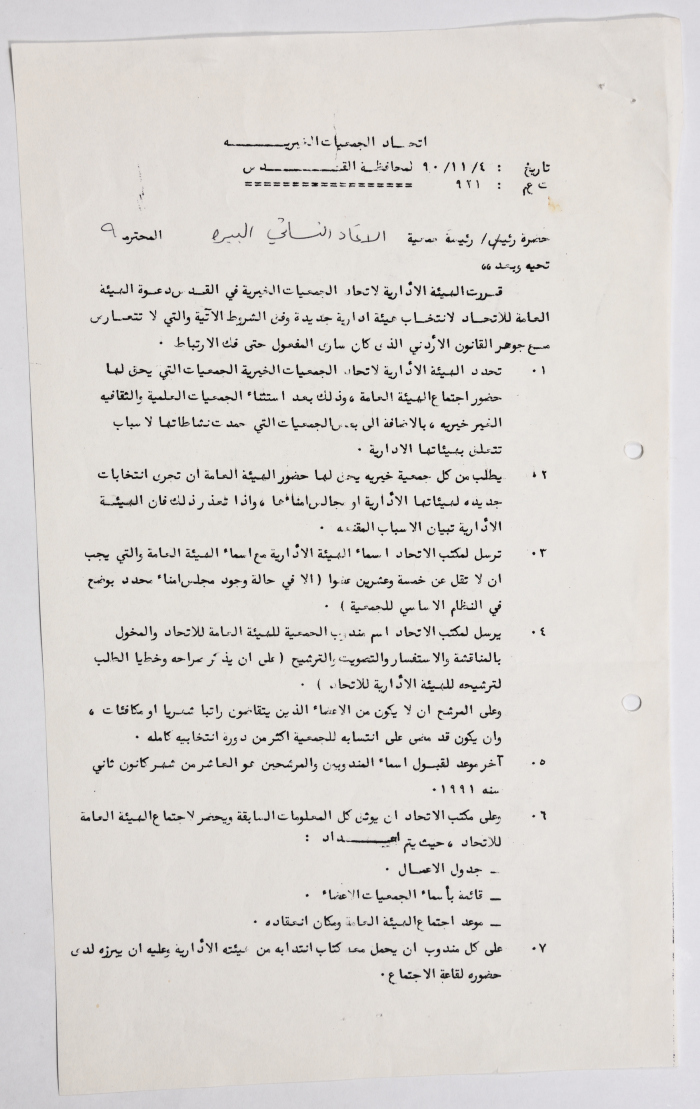 اتحاد الجمعيات الخيريه
تاريخ : ٩٠/١١/٤ لمحافظة القدس
: ٩٢١ ================
حضرة رئيس/ رئيسة جمعية الاتحاد النسائي البيره المحترمه
تحيه وبعد ،،
قررت الهيئة الأدارية لاتحاد الجمعيات الخيرية في القدس دعوة الهيئة
العامة للاتحاد لانتخاب هيئة ادارية جديدة وفق الشروط الآتية والتي لا تتعارض
مع جوهر القانون الأردني الذى كان سارى المفعول حتى فك الارتباط .
٠١ تحدد الهيئة الأدارية لاتحاد الجمعيات الخيرية الجمعيات التي يحق لها
حضور اجتماع الهيئة العامة ، وذلك بعد استثناء الجمعيات العلمية والثقافيه
الغير خيريه ، بالاضافة الى بعض الجمعيات التي جمدت نشاطاتها لاسباب
تتعلق بهيئاتها الادارية .
٠٢ يطلب من كل جمعية خيريه يحق لها حضور الهيئة العامة ان تجرى انتخابات
جديده لهيئاتها الأدارية او مجالس امنائها ، واذا تعذر ذلك فان الهيئة
الأدارية تبيان الاسباب المقنعه .
٠٣ ترسل لمكتب الاتحاد اسماء الهيئة الأدارية مع اسماء الهيئة العامة والتي يجب
ان لا تقل عن خمسة وعشرين عضوا ( الا في حالة وجود مجلس امناء محدد بوضح
في النظام الاساسي للجمعية ) .
٠٤ يرسل لمكتب الاتحاد اسم مندوب الجمعية للهيئة العامة للاتحاد والمخول
بالمناقشة والاستفسار والتصويت والترشيح ( على ان يذكر صراحه وخطيا الطلب
لترشيحه للهيئة الأدارية للاتحاد ) .
وعلى المرشح ان لا يكون من الاعضاء الذين يتقاضون راتبا شهريا او مكافئات ،
وان يكون قد مضى على انتسابه للجمعية اكثر من دورة انتخابيه كامله .
٠٥ آخر موعد لقبول اسماء المندوبين والمرشحين هو العاشر من شهر كانون ثاني
سنه ١٩٩١٠
٠٦ وعلى مكتب الاتحاد ان يوثق كل المعلومات السابقة ويحضر لاجتماع الهيئة العامة
للاتحاد ، حيث يتم اعداد :
ـ جدول الاعمال .
ـ قائمة بأسماء الجمعيات الاعضاء .
ـ موعد اجتماع الهيئة العامة ومكان انعقاده .
٠٧ على كل مندوب ان يحمل معه كتاب انتدابه من هيئته الأدارية وعليه ان يبرزه لدى
حضوره لقاعة الاجتماع .